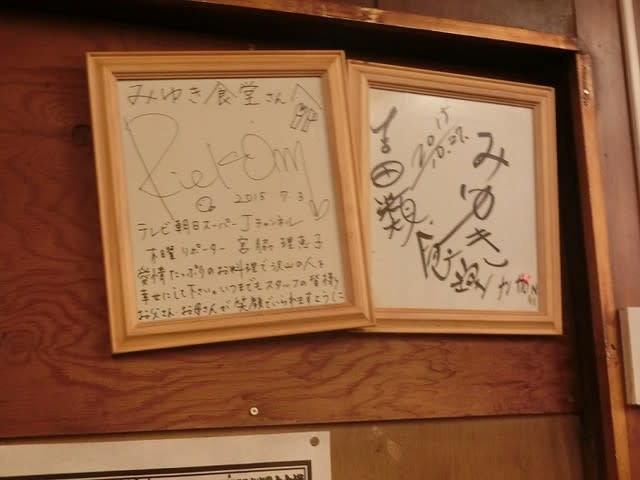 みゆき食堂さん江
2015.7.3
テレビ朝日スーパーJチャンネル
木曜リポーター 宮脇理恵子
愛情たっぷりのお料理で沢山の人を
幸せにして下さい。いつまでもスタッフの皆様、
お父さん、お母さんが笑顔でいられますように
吉田類
2015
10.27.
みゆき
食堂